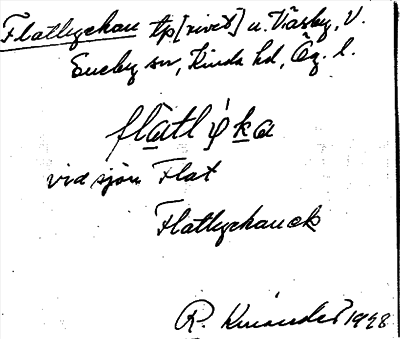 Flatlyckan tp[rivet] u. Väsby, V.
Eneby sn, Kinda hd, Ög. l.
flatl̀yka
vid sjön Flat
Flatlyckan ek
R. 1928